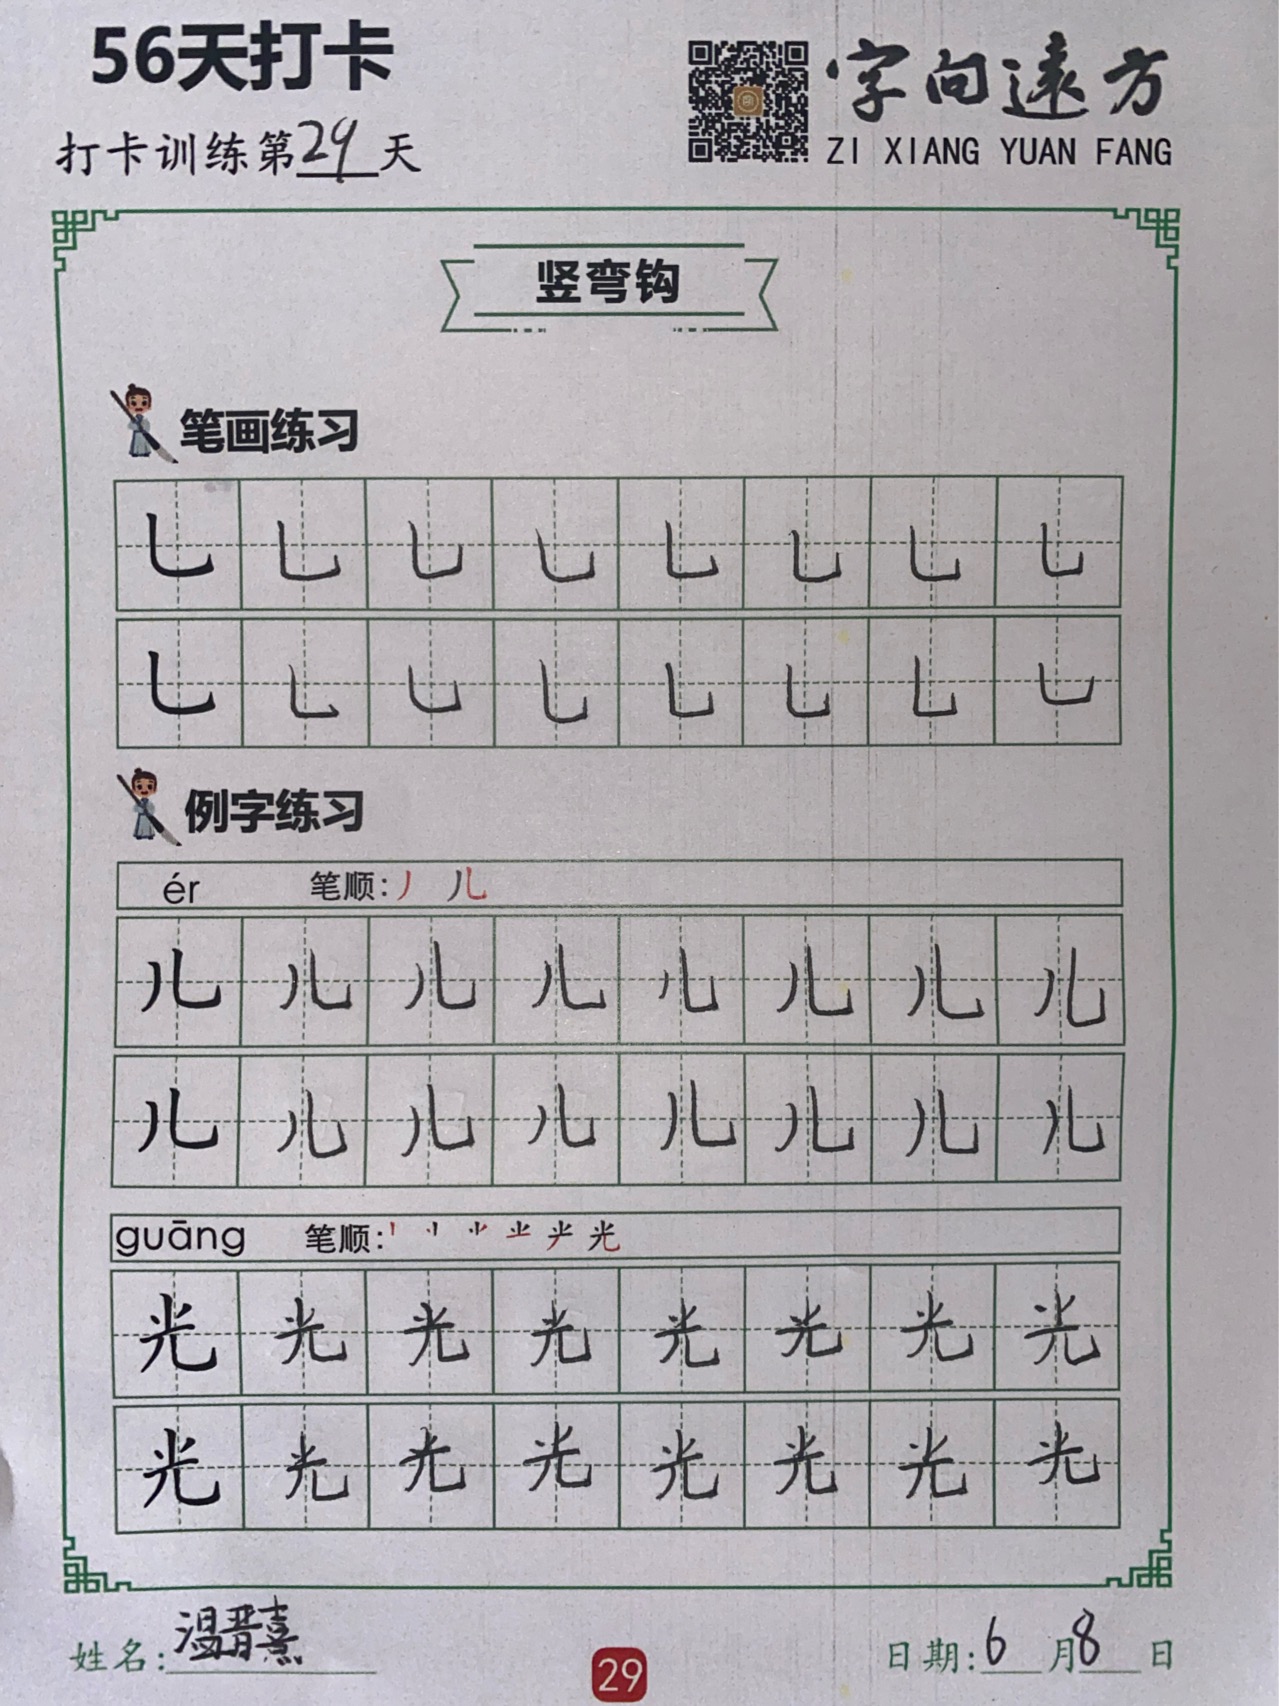 56天打卡
字向遠方
打卡训练第29天
ZI XIANG YUAN FANG
竖弯钩
笔画练习
乚 乚 乚 乚 乚 乚 乚 乚
乚 乚 乚 乚 乚 乚 乚 乚
例字练习
ér 笔顺:丿 儿
儿 儿 儿 儿 儿 儿 儿 儿
儿 儿 儿 儿 儿 儿 儿 儿
guāng 笔顺: 光
光 光 光 光 光 光 光 光
光 光 光 光 光 光 光 光
姓名:温晋熹
29
日期:6月8日